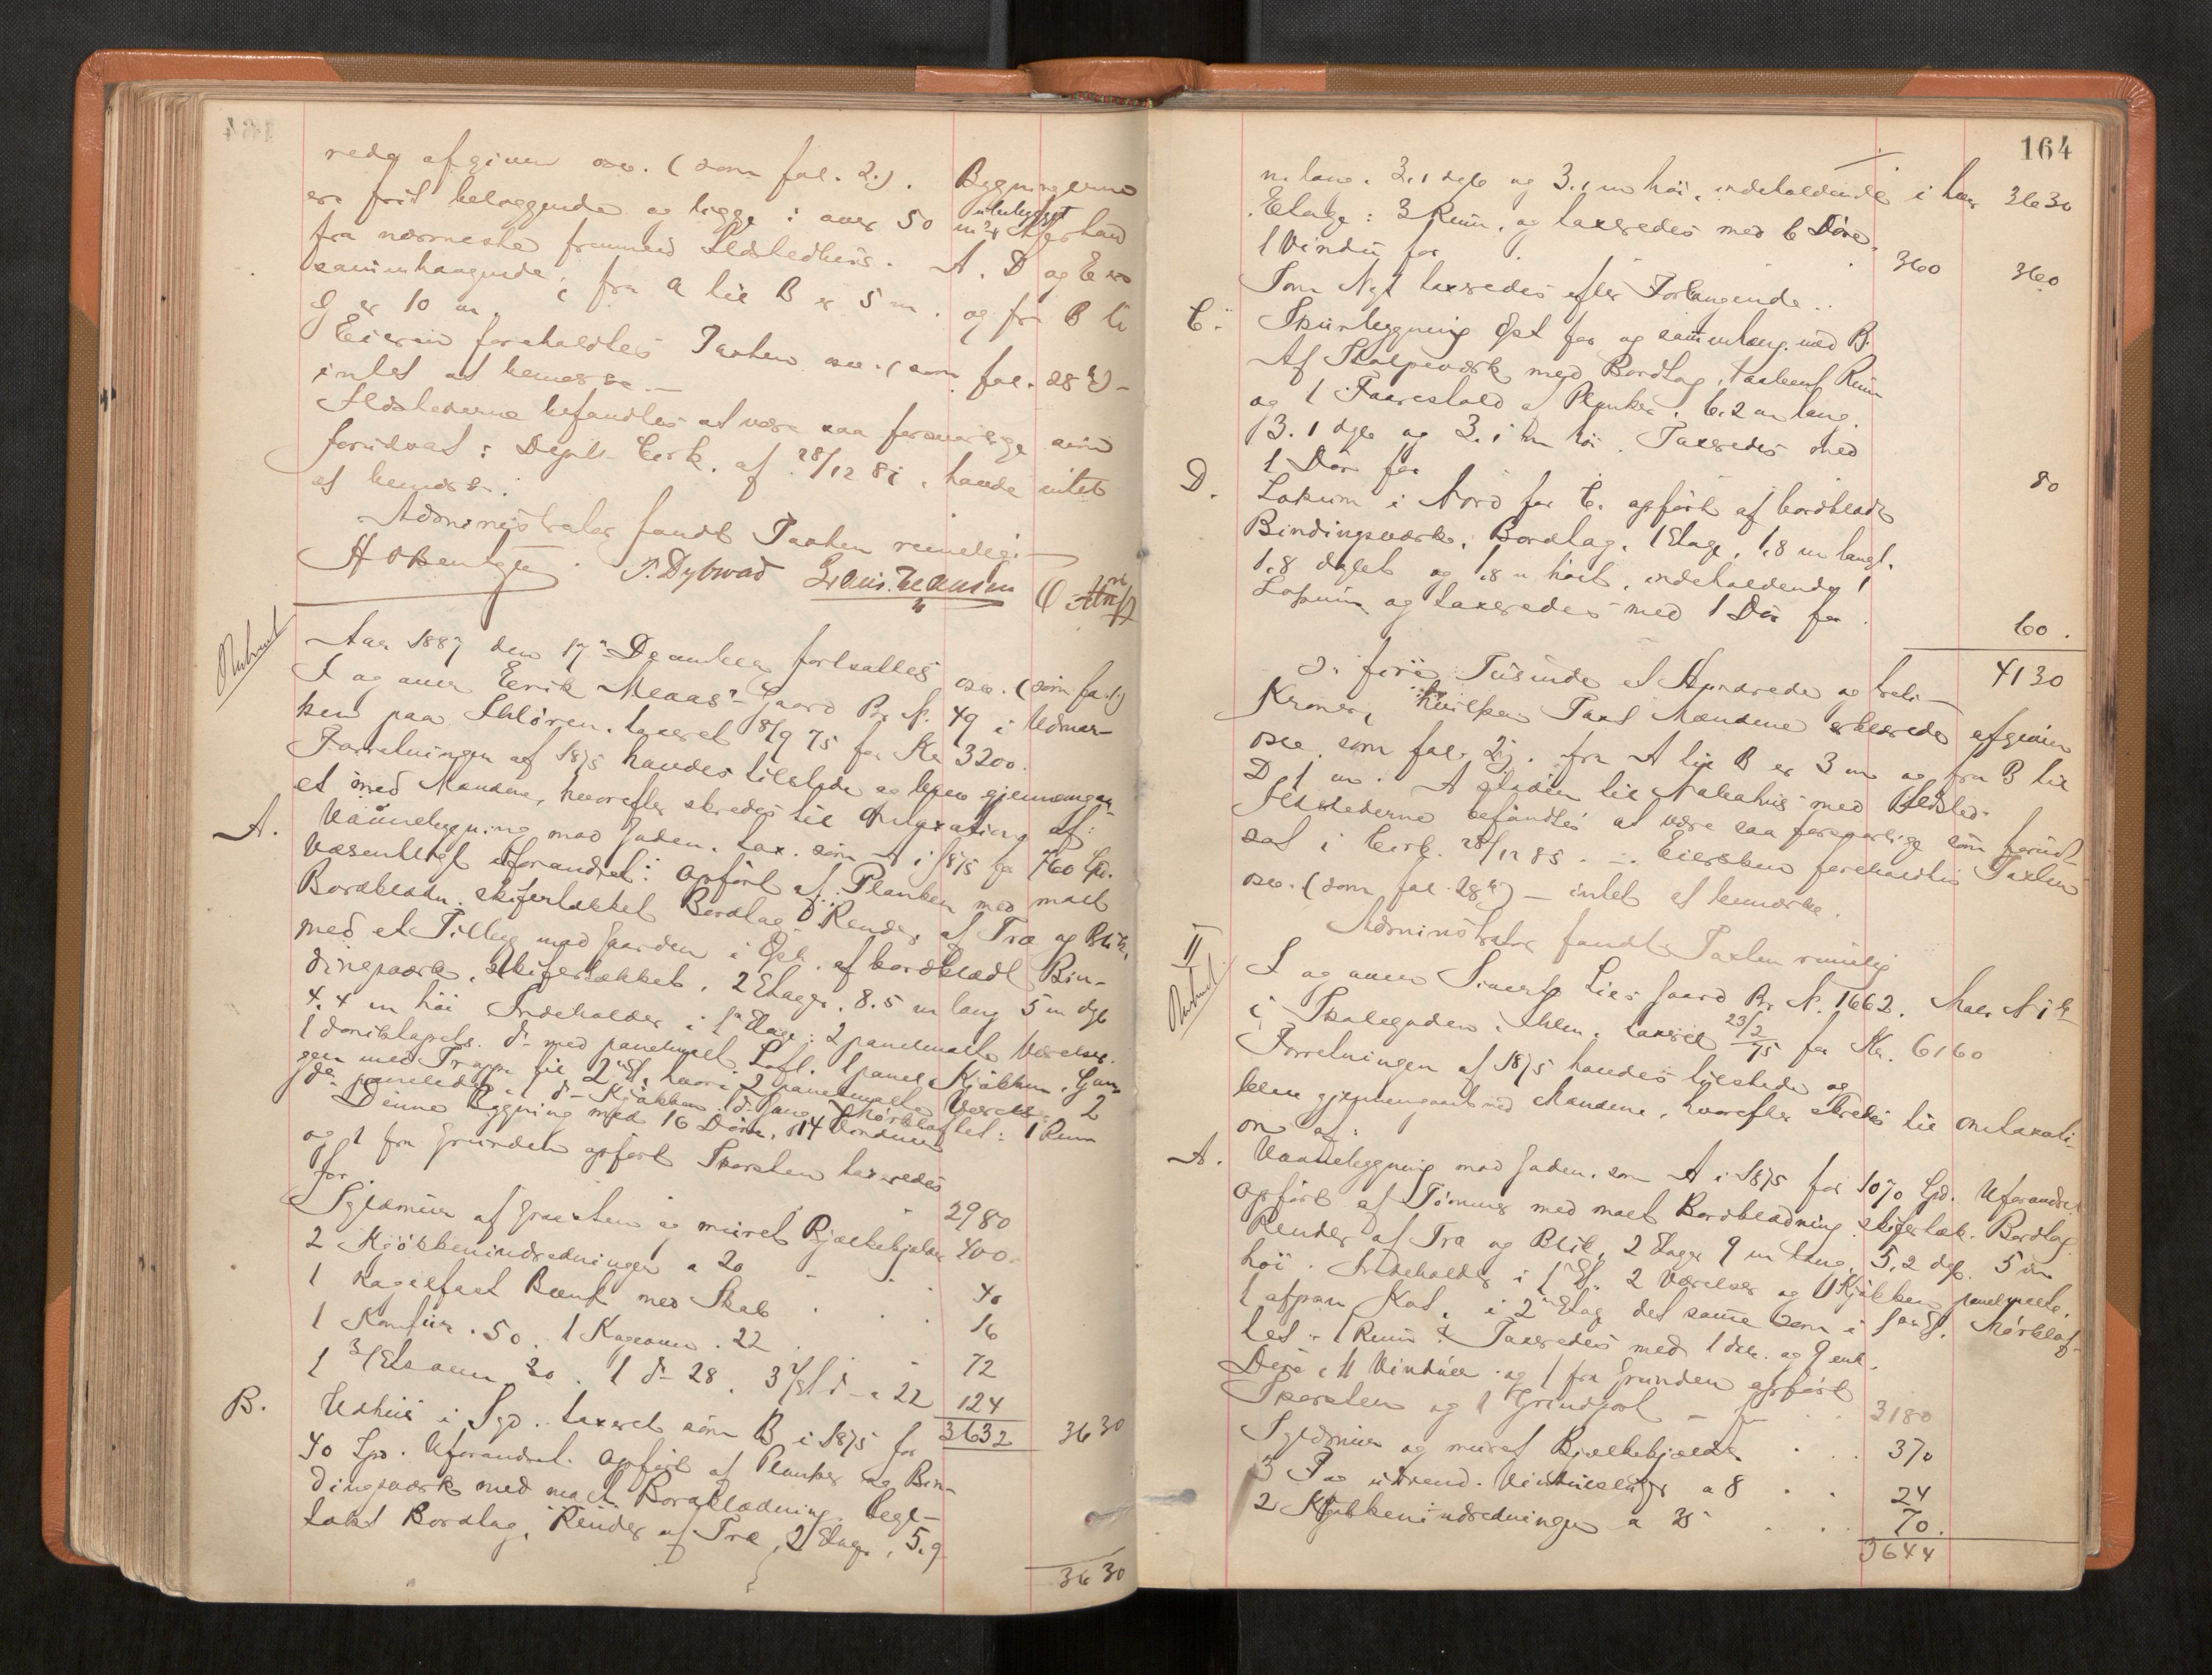 redg afgiven osv. (som fol. 2.). Bygningerne
ere frit beliggende og ligge i over 50 m's Afstand
fra nærmeste fremmed Ildstedhus. A. D og E ere
sammenhængende; fra A til B er 5 m. og fra B til
er 10 m.
Eieren foreholdtes Taxten osv. (som fol. 28) -
intet at bemærke. -
Ildstederne befandtes at være saa forsvarlige som
forudsat i Dept. Cirk. af 28/12 85, havde intet
at bemærke.
Administrator fandt Taxten rimelig. -
P. Dybwad Hansen
Aar 1887 den 17 December fortsattes osv. (som fol. 1)
I og over Eerik Gaard Br. N. 49 i Udmar-
ken paa Ihlören. taxeret 18/9 75 for Kr 3200.
Forretningen af 1875 havdes tilstede og blev gjennemgaa-
et med Mændene, hvorefter skredes til Omtaxation af:
A. Vaanebygning mod Gaden. tax. som A i 1875 for 760 Spd.
Væsentligt uforandret: Opfört af Planker med malt
Bordklædn. skifertækket Bordtag Render af Træ og Blik,
med et Tillæg mod Gaarden i Öst. af bordklædt Bin-
dingsværk, skifertækket, 2 Etager. 8.5 m lang 5 m dyb
4.4 m höi Indeholder i 1ste Etage: 2 panelmalte Værelser.
1 do med panelmalt Loft. 1 panel. Kjökken, Gan-
gen med Trappe til 2 Et, hvori 2 panelmalte Værelser 2
do panelede, 1 do Kjökken, 1 do Gang Mörkloftet: 1 Rum
Denne Bygning med 16 Döre, 14 Vinduer
og 1 fra Grunden opfört Skorsten taxeredes
for 2980
Syldmur af Graasten og muret Bjælkekjelder 400
2 Kjökkenindredninger a 20 40
1 Bænk med Skab 16
1 Komfur. 50. 1 Kogeovn. 22 72
1 3/Etovn 30. 1 do 28. 3 2/Et do a 22 124
3632 3630
B. Udhus i Syd. taxeret som B i 1875 for
40 Spd. Uforandret. Opfört af Planker og Bin-
dingsværk med malt Bordklædning. tegl-
takt Bordtag, Render af Træ, 2 Etager, 5.9
3630
164
m. lang. 3.1 dyb og 3.1 m höi, indeholdende i hver 3630
Etage: 3 Rum, og taxeredes med 6 Döre,
1 Vindu for 360 360
Som Nyt taxeredes efter Forlangende:
C. Skurbygning Öst for og sammenhæng. med B.
Af Stolpeværk med Bordtag, Rum
og 1 Faarestald af Planker. 6.2 m lang.
3.1 dyb og 3.1 m höi. Taxeredes med
1 Dör for 80
D. Lokum i Nord for C. opfört af bordklædt
Bindingsværk, Bordtag. 1 Etage. 1.8 m langt.
1.8 dybt og 1.8 m höit, indeholdende 1
Lokum og taxeredes med 1 Dör for 60.
4130
fire Tusinde et Hundrede og treti
Kroner, hvilken Taxt Mændene erklærede afgiven
osv. som fol. 2. fra A til B er 3 m og fra B til
D 1 m. A stöder til Nabohus med Ildsted.
Ildstederne befandtes at være saa forsvarlige som forud-
sat i Cirk. 28/12 85. - Eiersken foreholdtes Taxten
osv. (som fol. 28) - intet at bemærke.
Administrator fandt Taxten rimelig
II I og over Sivert Lies Gaard Br. N. 1662. Matr. N
i Skolegaden. Ihlen. taxeret 23/2 75 for Kr. 6160
Forretningen af 1875 havdes tilstede og
blev gjennemgaaet med Mændene, hvorefter skredes til Omtaxati-
on af:
A. Vaanebygning mod Gaden. som A i 1875 for 1070 Spd. Uforandret
Opfört af Tömmer med malt Bordklædning skifertæk. Bordtag.
Render af Træ og Blik, 2 Etager 9 m lang. 5,2 dyb. 5 m
höi. Indeholder i 1 Et. 2 Værelser og 1 Kjökken panelmalte,
1 afpan. Kot, i 2 Etag det samme som i 1ste Et. Mörklof-
tet: 1 Rum. Taxeredes med 1 dob. og 9 enk.
Döre, 11 Vinduer og 1 fra Grunden opfört
Skorsten og 1 Grindport - for 3180
Syldmur og muret Bjælkekjælder 370
3 Fag udvend. Vinduesluger a 8 24
2 Kjökkenindredninger a 35 70.
3644